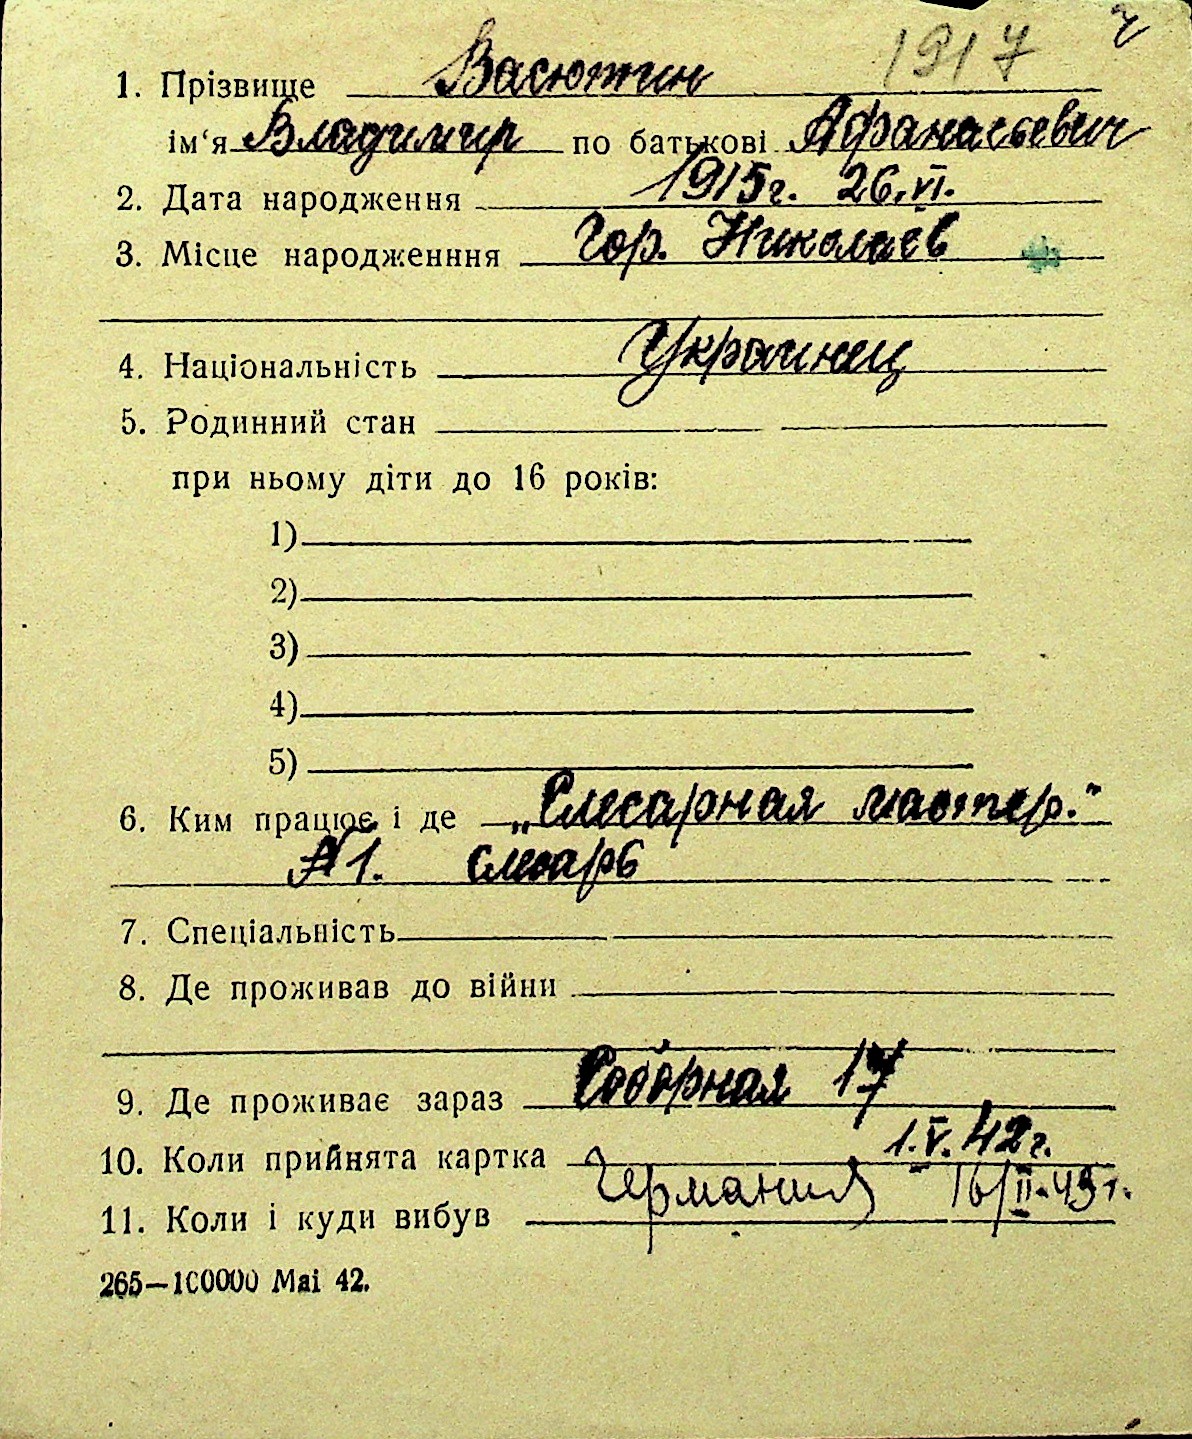 1917 ч
1. Прізвище Васютин
ім‘я Владимир по батькові Афанасьевич
2. Дата народження 1915г. 26.VI.
3. Місце народженння Гор. Николаев
4. Національність Украинец
5. Родинний стан
при ньому діти до 16 років:
1)
2)
3)
4)
5)
6. Ким працює і де „Слесарная мастер.“
№1. слесарь
7. Спеціальність
8. Де проживав до війни
9. Де проживає зараз Соборная 17
10. Коли прийнята картка 1.V.42г.
11. Коли і куди вибув Германия 16/II.43г.
265—100000 Mai 42.